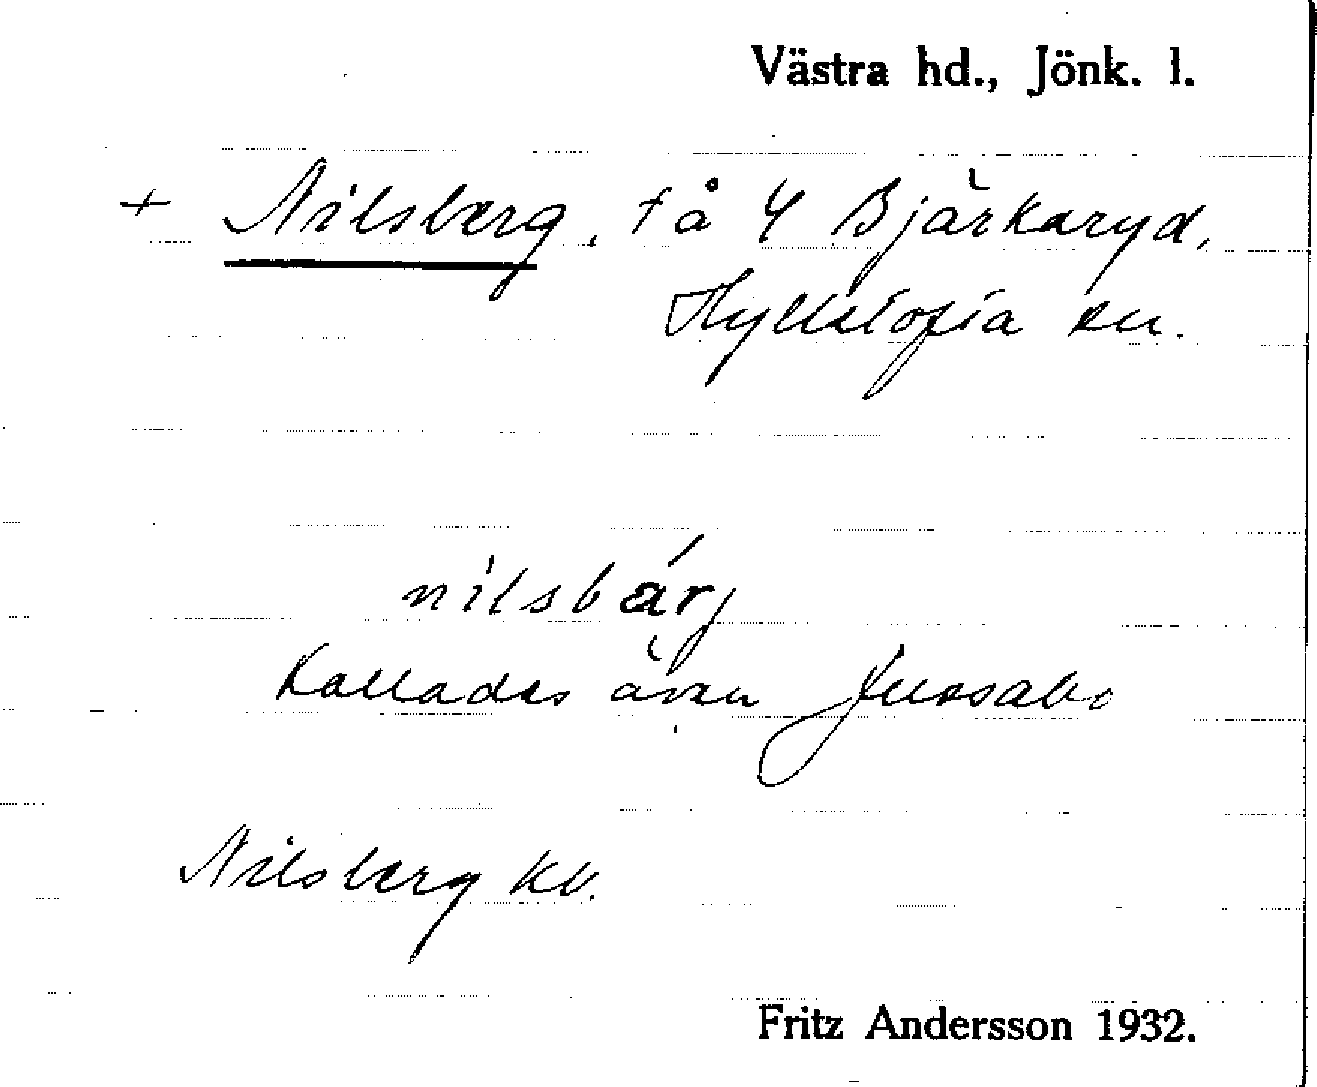 Västra hd., Jönk. l.
+ Nilsberg, t å 4 Bjärkaryd,
Hyltstofta sn.
nilsbärj
Kallades även Jussabo
Nilsberg kb.
Fritz Andersson 1932.